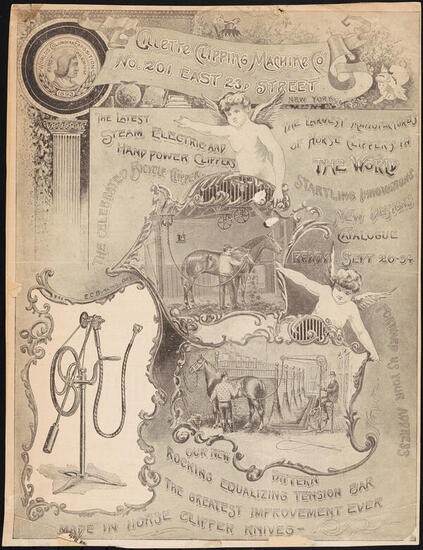 Gillette Clipping Machine Co
No. 201 East 23D Street
New York
1893
The Latest
Steam Electric and
Hand Power Clippers
The Celebrated Bicycle Clipper
The Largest Manufacturers
of Horse Clippers in
The World
Startling Innovations
New Designs
Catalogue
Ready Sept 20-94
Forward us your address
Our New
Pattern
Rocking Equalizing Tension Bar
The Greatest Improvement Ever
Made in Horse Clipper Knives-